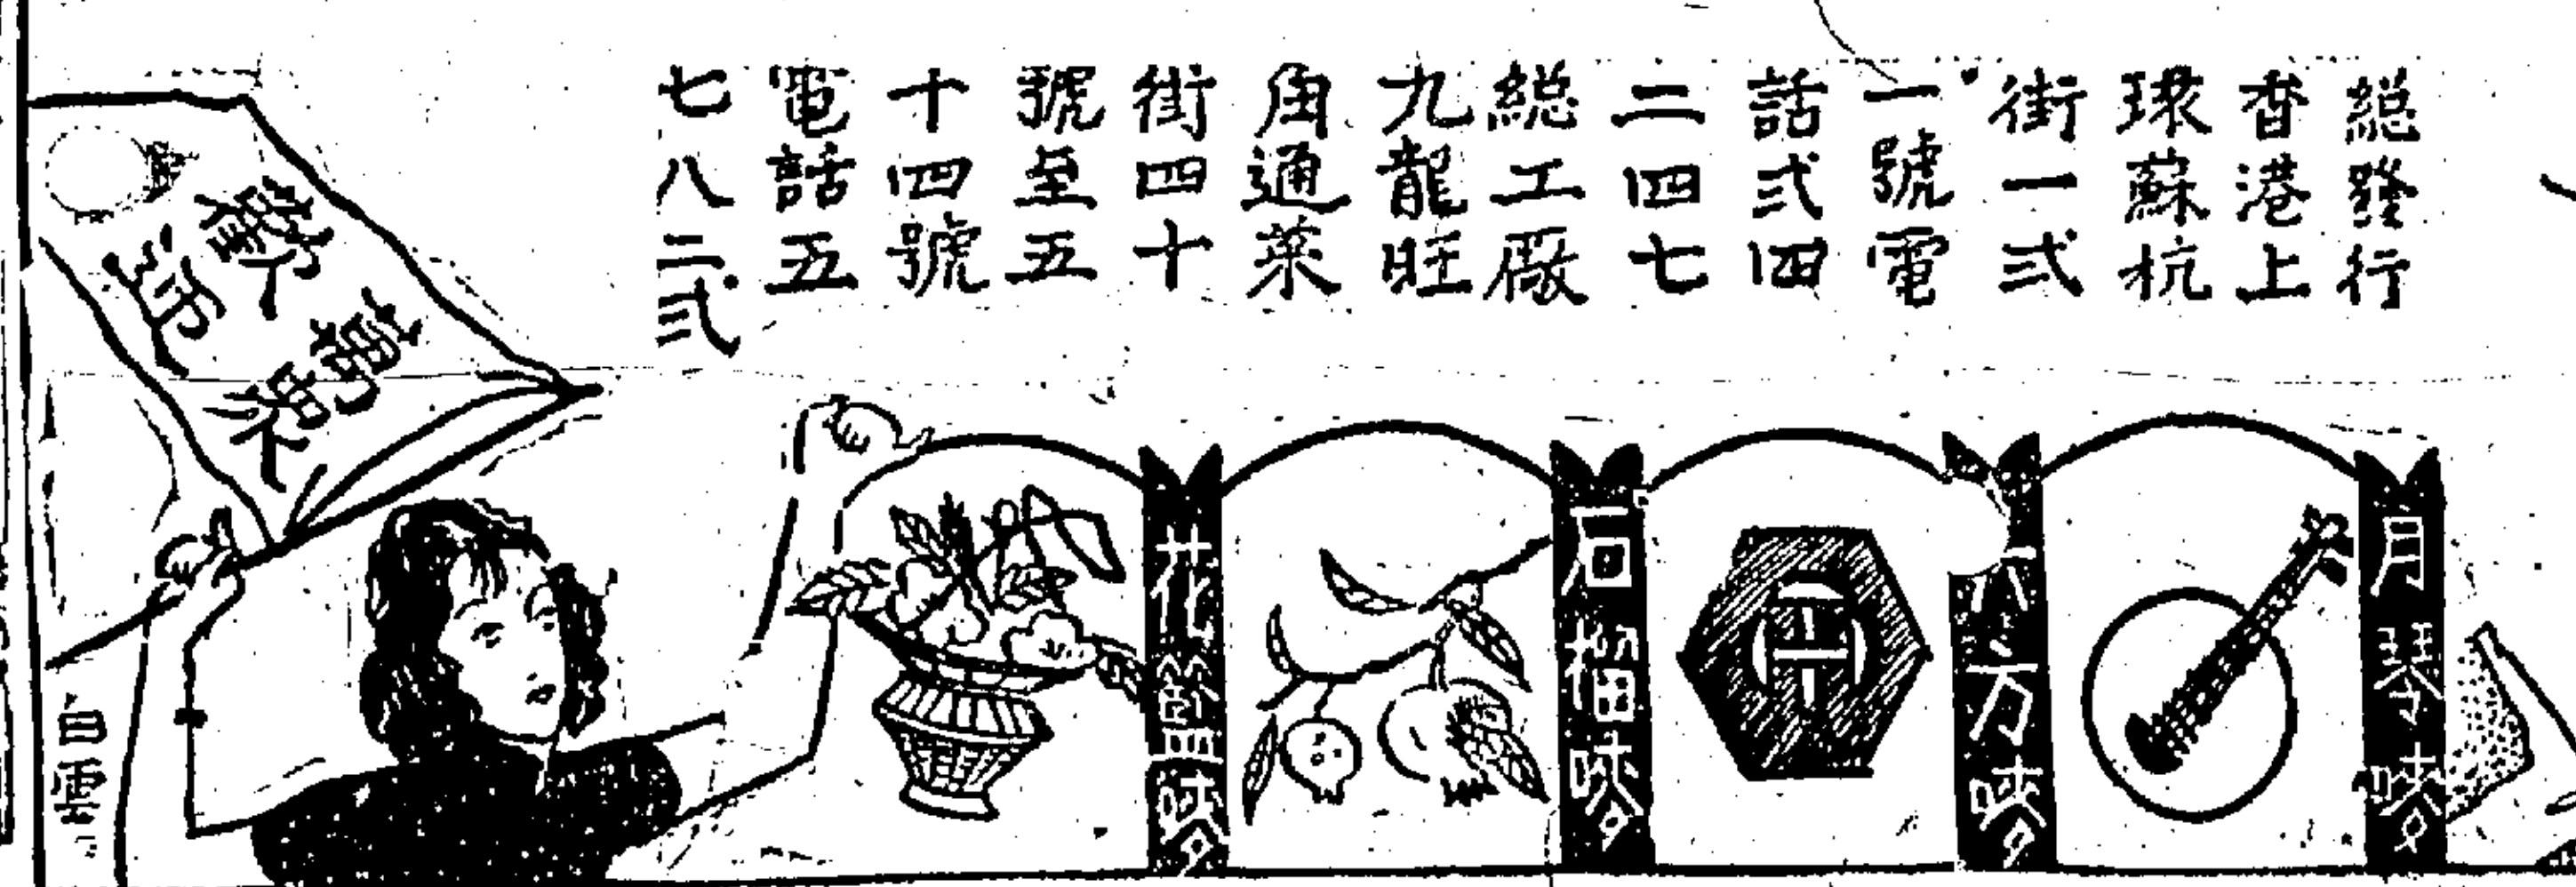 總發行
香港上
環蘇杭
街一弍
一號電
話弍四
二四七
總工廠
九龍旺
角通菜
街四十
號至五
十四號
電話五
七八二弍
月琴嘜
六方嘜
石榴嘜
花籃嘜